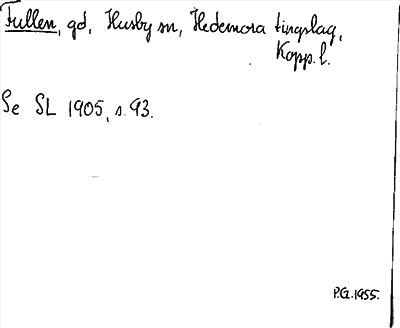 Fullen, gd, Husby sn, Hedemora tingslag,
Kopp. l.
Se SL 1905, s. 93.
P.G. 1955.